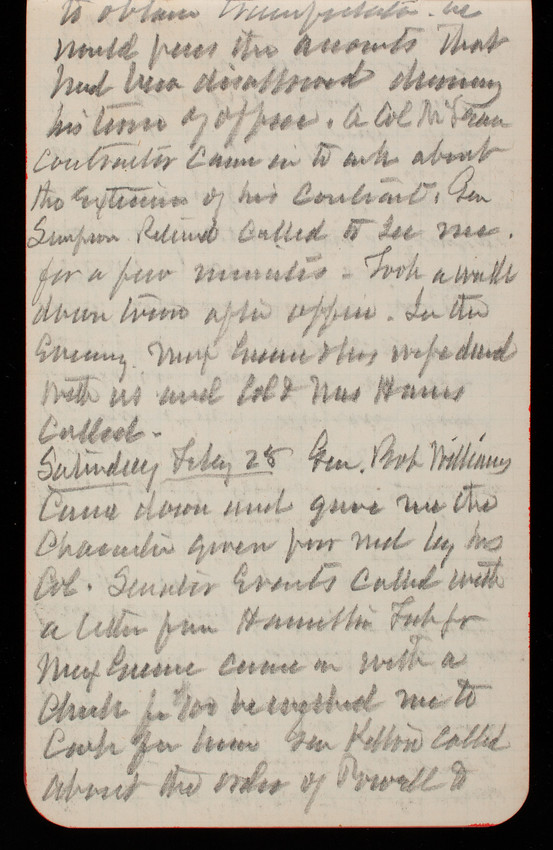 to obtain
would pass the accounts that
had been disallowed during
his term of office. A Col
contractor came in to ask about
the extension of his contract. Gen
Simpson Retired called to see me.
for a few minutes - Took a walk
down town after office. In the
Evening. Max Greene & his wife dined
with us and Col & Mrs Haws
Called -
Saturday Feby 28 Gen. Rob Williams
Came down and gave me the
Character given by his
Col. Senator Evarts called with
a letter from Hamilton
Max Greene came in with a
Check for he wished me to
Cash for him Gen Kelton called
about the order of Powell &